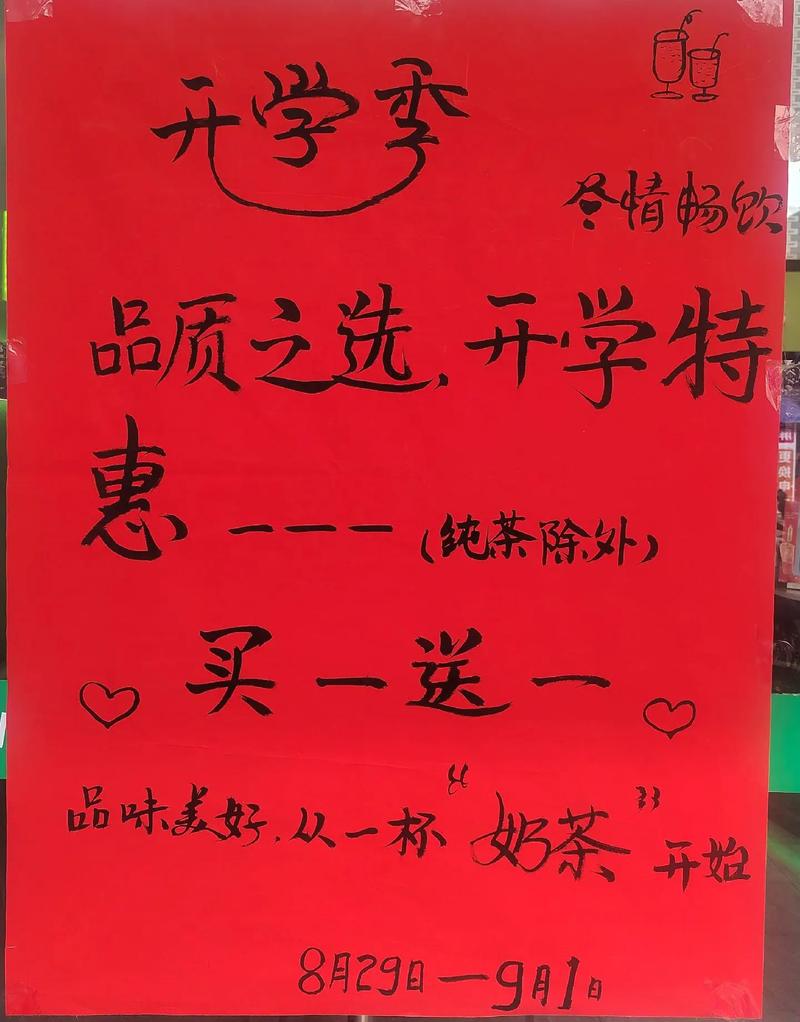 开学季
尽情畅饮
品质之选，开学特
惠 ---（纯茶除外）
买一送一
品味美好，从一杯“奶茶”开始
8月29日—9月1日